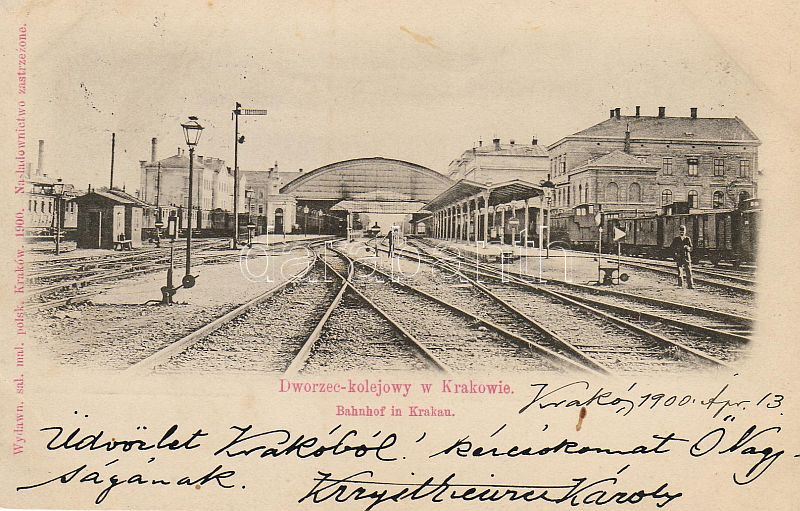 Wydawn. sal. mal. polsk. Kraków. 1900. Naśladownictwo zastrzeżone.
darabanth
Dworzec-kolejowy w Krakowie.
Bahnhof in Krakau.
Krakó, 1900. Apr. 13.
Üdvözlet Krakóból! kézcsókomat Ő Nagy-
ságának. Károly